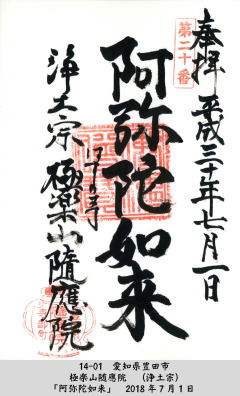 奉拝 平成三十年七月一日
第二十番
阿弥陀如来
浄土宗 極楽山 隨應院
14-01 愛知県豊田市
極楽山随應院 (浄土宗)
「阿弥陀如来」 2018年7月1日